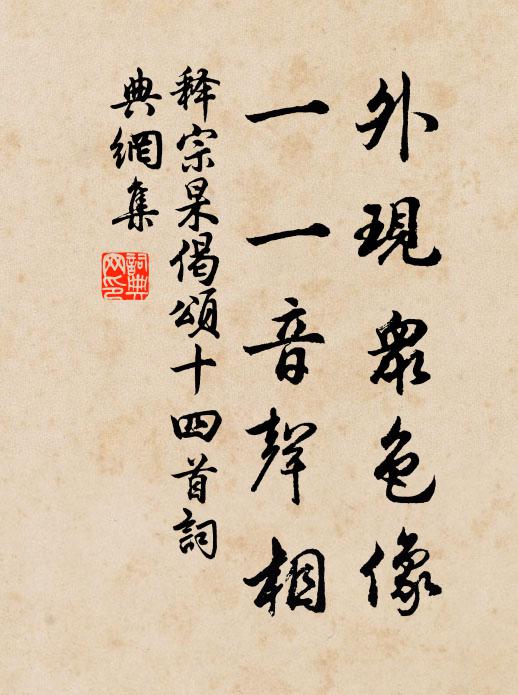 外現衆色像
一一音聲相
释宗杲偈頌十四首詞
典網集
詞典
网印